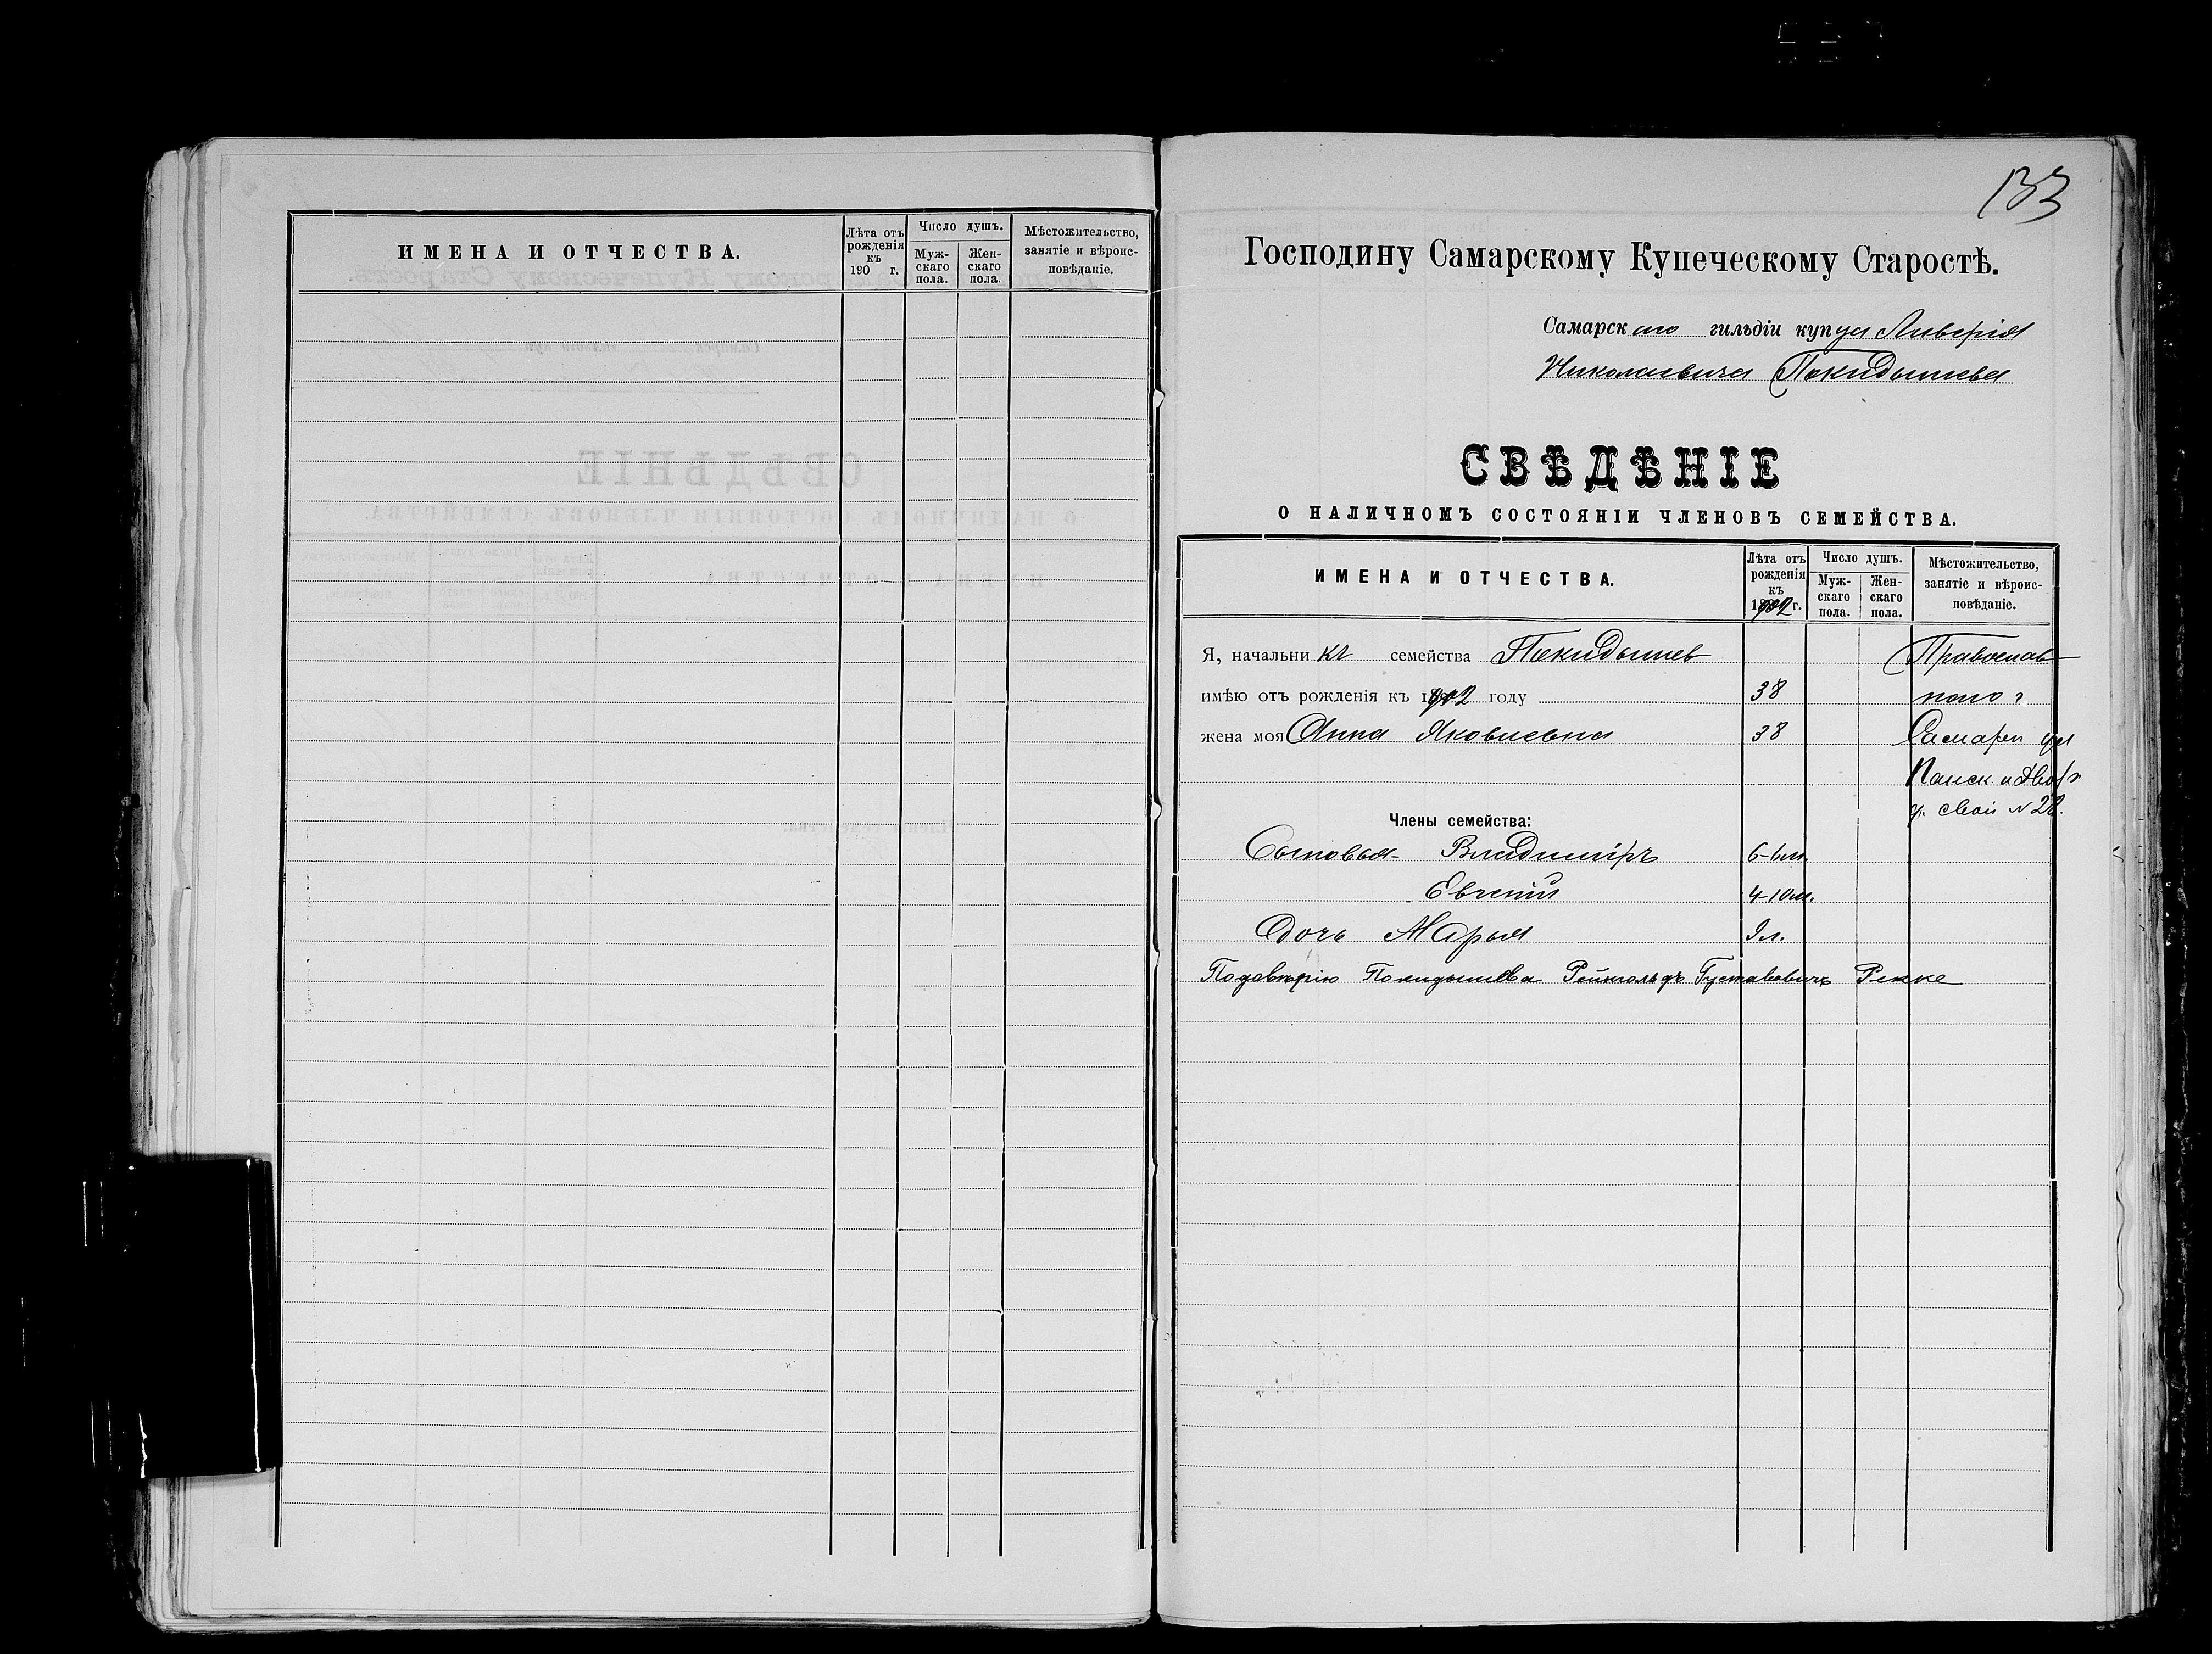 ИМЕНА И ОТЧЕСТВА.
Лѣта отъ рожденія къ 190 г.
Число душъ.
Мужскаго пола.
Женскаго пола.
Мѣстожительство, занятіе и вѣроисповѣданіе.
133
Господину Самарскому Купеческому Старостѣ.
Самарскаго гильдіи купца Ливерія
Николаевича Покидышева
СВѢДѢНІЕ
О НАЛИЧНОМЪ СОСТОЯНІИ ЧЛЕНОВЪ СЕМЕЙСТВА.
ИМЕНА И ОТЧЕСТВА.
Лѣта отъ рожденія къ 1902 г.
Число душъ.
Муж-скаго пола.
Жен-скаго пола.
Мѣстожительство, занятіе и вѣроис-повѣданіе.
Я, начальникъ семейства Покидышев Православ
имѣю отъ рожденія къ 1902 году 38 наго
жена моя Анна Яковлевна 38 Самара уг
Панск. и Двор
д. свой № 28.
Члены семейства:
Сыновья- Владиміръ 6-6м.
Евгеній 4-10м.
Дочь Марья л.
По довѣрію Покидышева Рейнгольдъ Густавовичъ Рекке